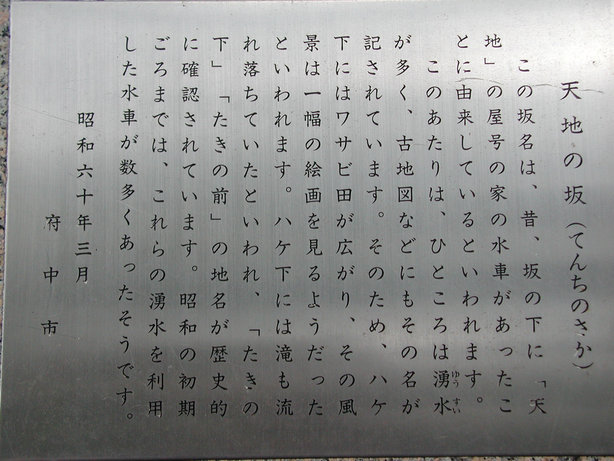 天地の坂(てんちのさか)
この坂名は、昔、坂の下に「天
地」の屋号の家の水車があったこ
とに由来しているといわれます。
このあたりは、ひところは湧水
ゆうすい
が多く、古地図などにもその名が
記されています。そのため、ハケ
下にはワサビ田が広がり、その風
景は一幅の絵画を見るようだった
といわれます。ハケ下には滝も流
れ落ちていたといわれ、「たきの
下」「たきの前」の地名が歴史的
に確認されています。昭和の初期
ごろまでは、これらの湧水を利用
した水車が数多くあったそうです。
昭和六十年三月
府中市